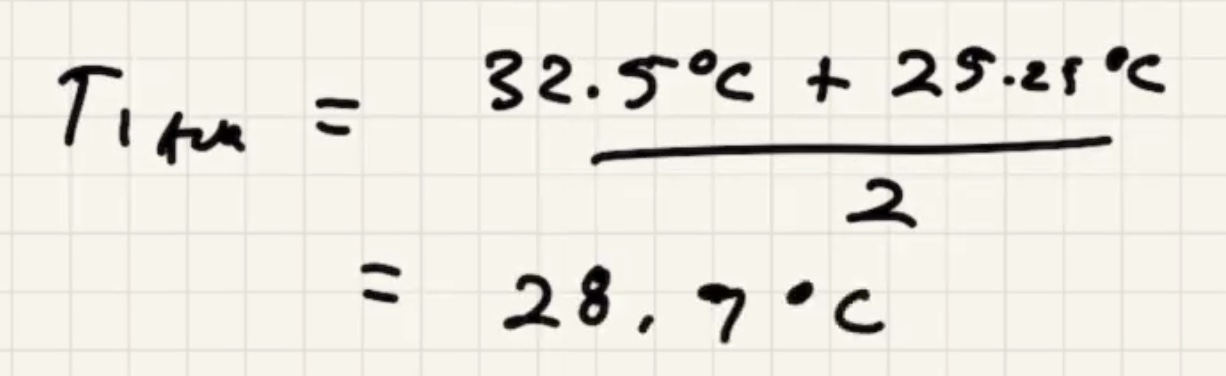 T₁ = 32.5°C + 25.25°C
2
= 28.9°C